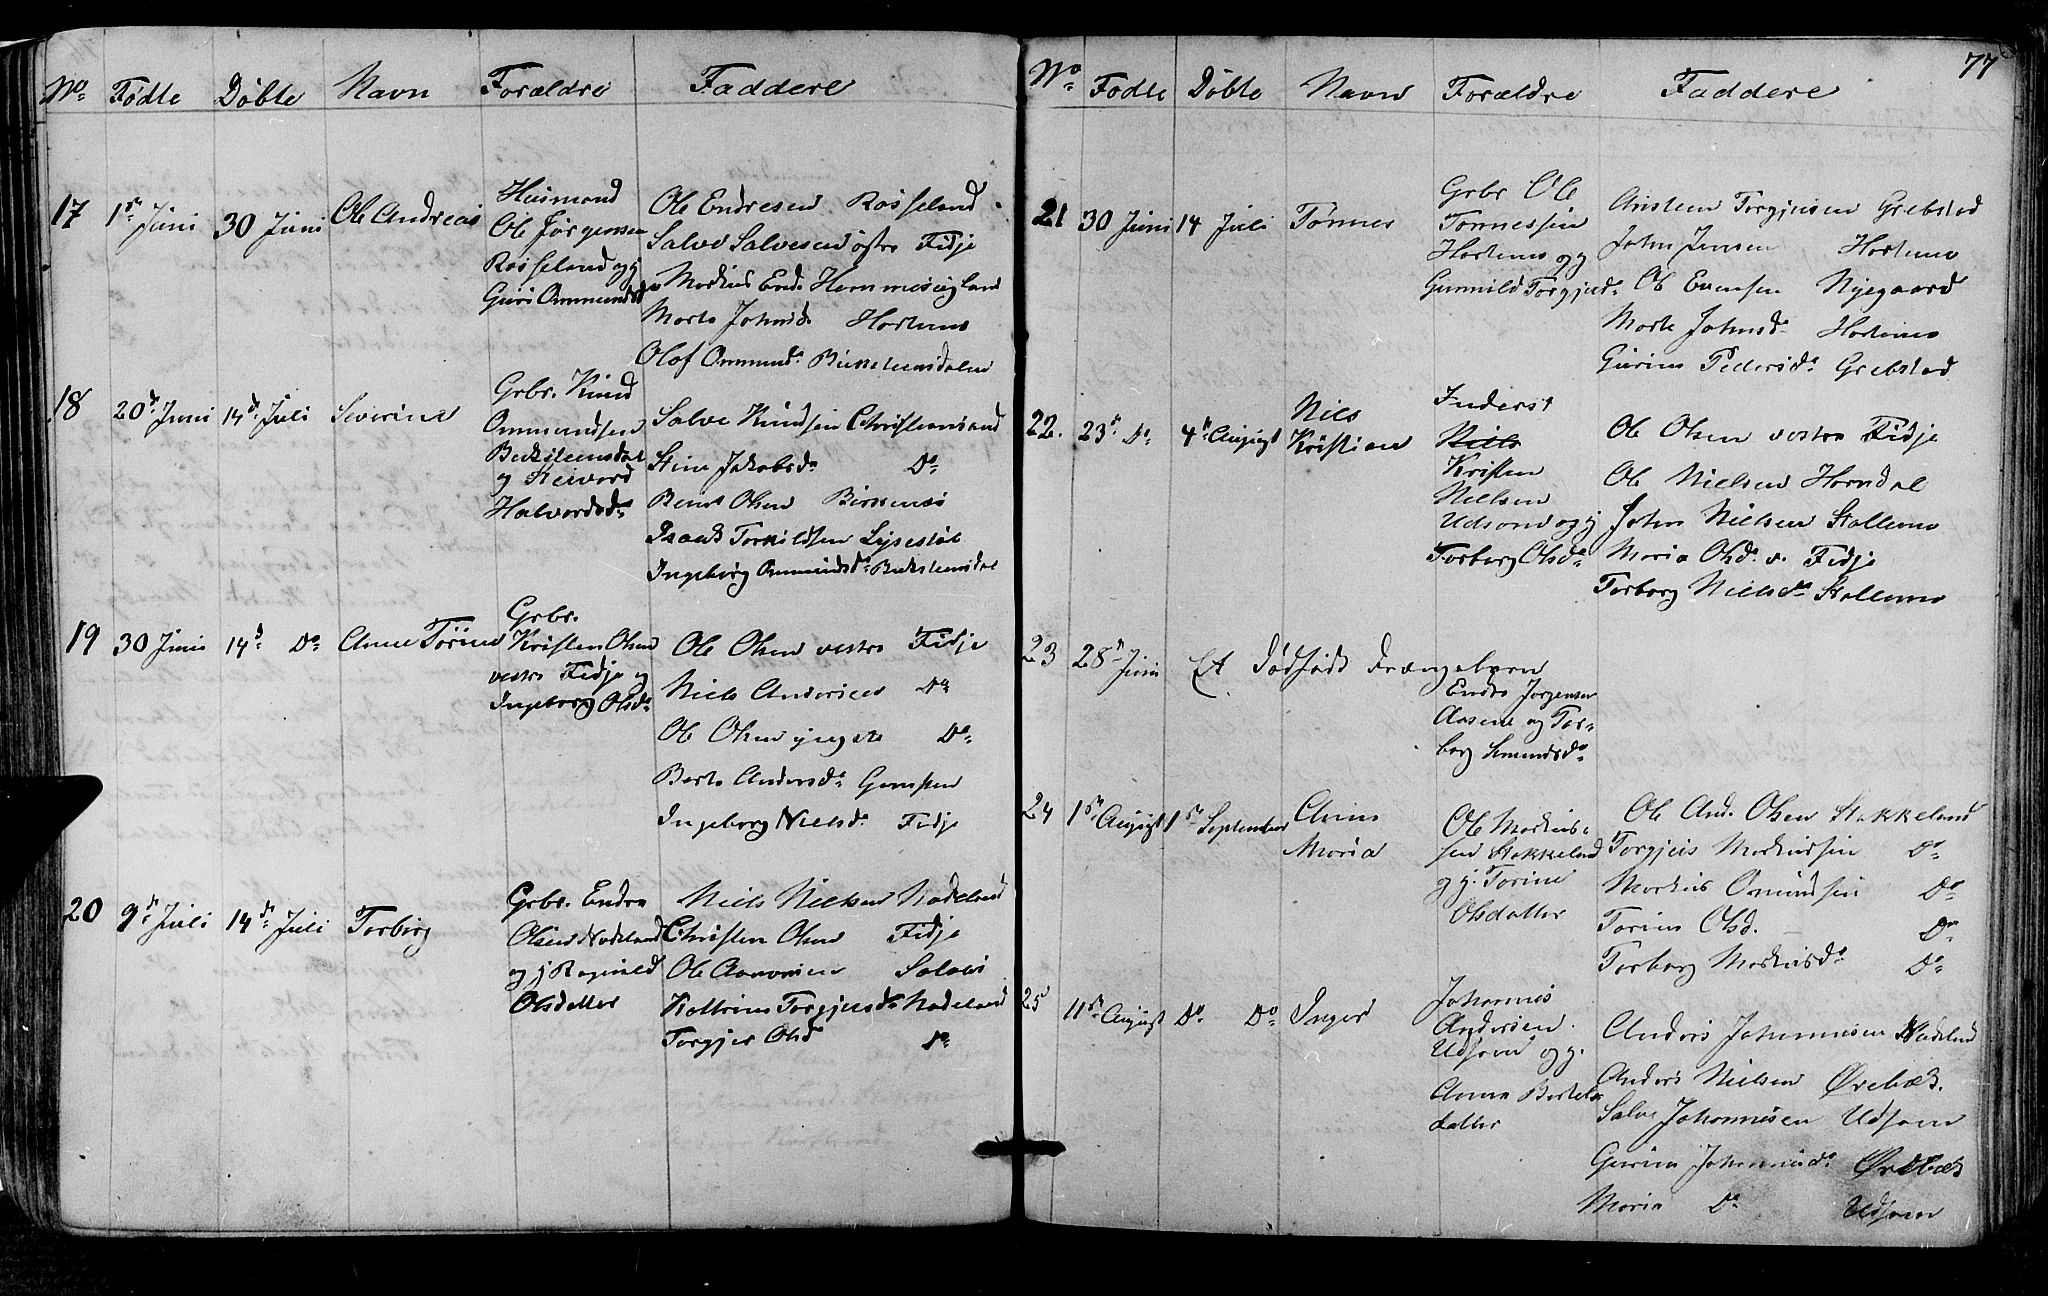 No. Fødte Døbte Navn Forældre Faddere
17 1ste Juni 30 Juni Ole Andreas
Husmand
Ole Jørgensen
Rosseland og
Guri Ommundsd
Ole Endresen Rosseland
Salve Salvesen østre Fidje
Markus End. Hommesigland
Marte Johnsd. Hortemo
Olof Ommundsd. Birkelunsdalen
18 20de Juni 14de Juli Severine
Grbr. Knud
Ommundsen
og Sievord
Halvordsd.
Salve Knudsen Christiansand
Stine Jakobsd. Do
Bent Olsen Birkenes
Isaak Torkildsen Lysestøl
Ingeborg Ommundsd.
19 30 Juni 14d. Do. Anne Torine
Grbr.
Kristen Olsen
vestre Fidje og
Ingeborg Olsd.
Ole Olsen vestre Fidje
Niels Andersen Do
Ole Olsen yngste Do.
Berte Andersd.
Ingeborg Nielsd. Fidje
20 9de Juli 14de Juli Torborg
Grbr. Endre
Olsen Nodeland
og j Ragnild
Olsdatter
Niels Nielsen Nodeland
Christen Olsen Fidje
Ole Aanonsen
Kathrine Torgjusd. Nodeland
Torgjer Olsd Do.
77
No. Fødte Døbte Navn Forældre Faddere
21 30 Juni 14 Juli Tønnes
Grbr Ole
Tønnessen
Hortemo og
Gunnild Torgjusd.
Torgjusen Grebstad
John Jensen Hortemo
Ole Evensen Nygaard
Marte Johnsd. Hortemo
Gurine Pedersd. Grebstad
22. 23de Do. 4de August Niels
Kristian
Inderst
Niels
Kristen
Nielsen
Udsom og
Torborg Olsd.
Ole Olsen vestre Fidje
Ole Nielsen Horndal
John Nielsen Stallemo
Maria Olsd. v. Fidje
Torborg Nielsd. Stallemo
23 28de Juni Et Dødfødt Drængebarn
Endre Jørgensen
Aasen og Tor-
borg Smundsd.
24 1ste August 1ste September Anne
Maria
Ole Markus-
sen Stokkeland
og j. Torine
Olsdatter
Ole And. Olsen Stokkeland
Torgjus Markussen Do.
Markus Omundsen Do
Torine Olsd. Do.
Torborg Markusd. Do.
25 11te August Do. Do. Inger
Johannes
Andersen
Udsom og g.
Anna Bertels-
datter
Anders Johannesen Nodeland
Anders Nielsen Ørebæk.
Salve Johannesen Udsom
Gurine Johannesd. Ørebæk
Maria Do Udsom